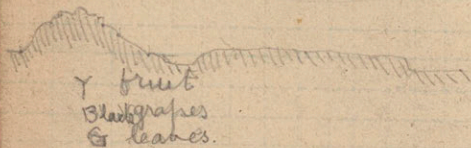 Y fruit
Black grapes
G leaves.